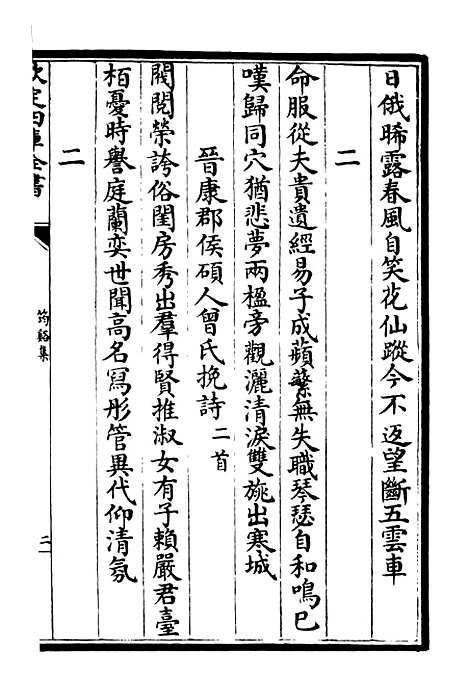 日俄晞露春風自笑花仙蹤今不返望斷五雲車
二
命服從夫貴遺經易子成蘋蘩無失職琴瑟自和鳴巳
嘆歸同穴猶悲夢兩楹旁觀灑清淚雙旐出寒城
晉康郡侯碩人曾氏挽詩二首
閥閱榮誇俗閨房秀出羣得賢推淑女有子賴嚴君臺
栢憂時譽庭蘭奕世聞高名冩彤管異代仰清氛
二
欽定四庫全書
筠谿集
二